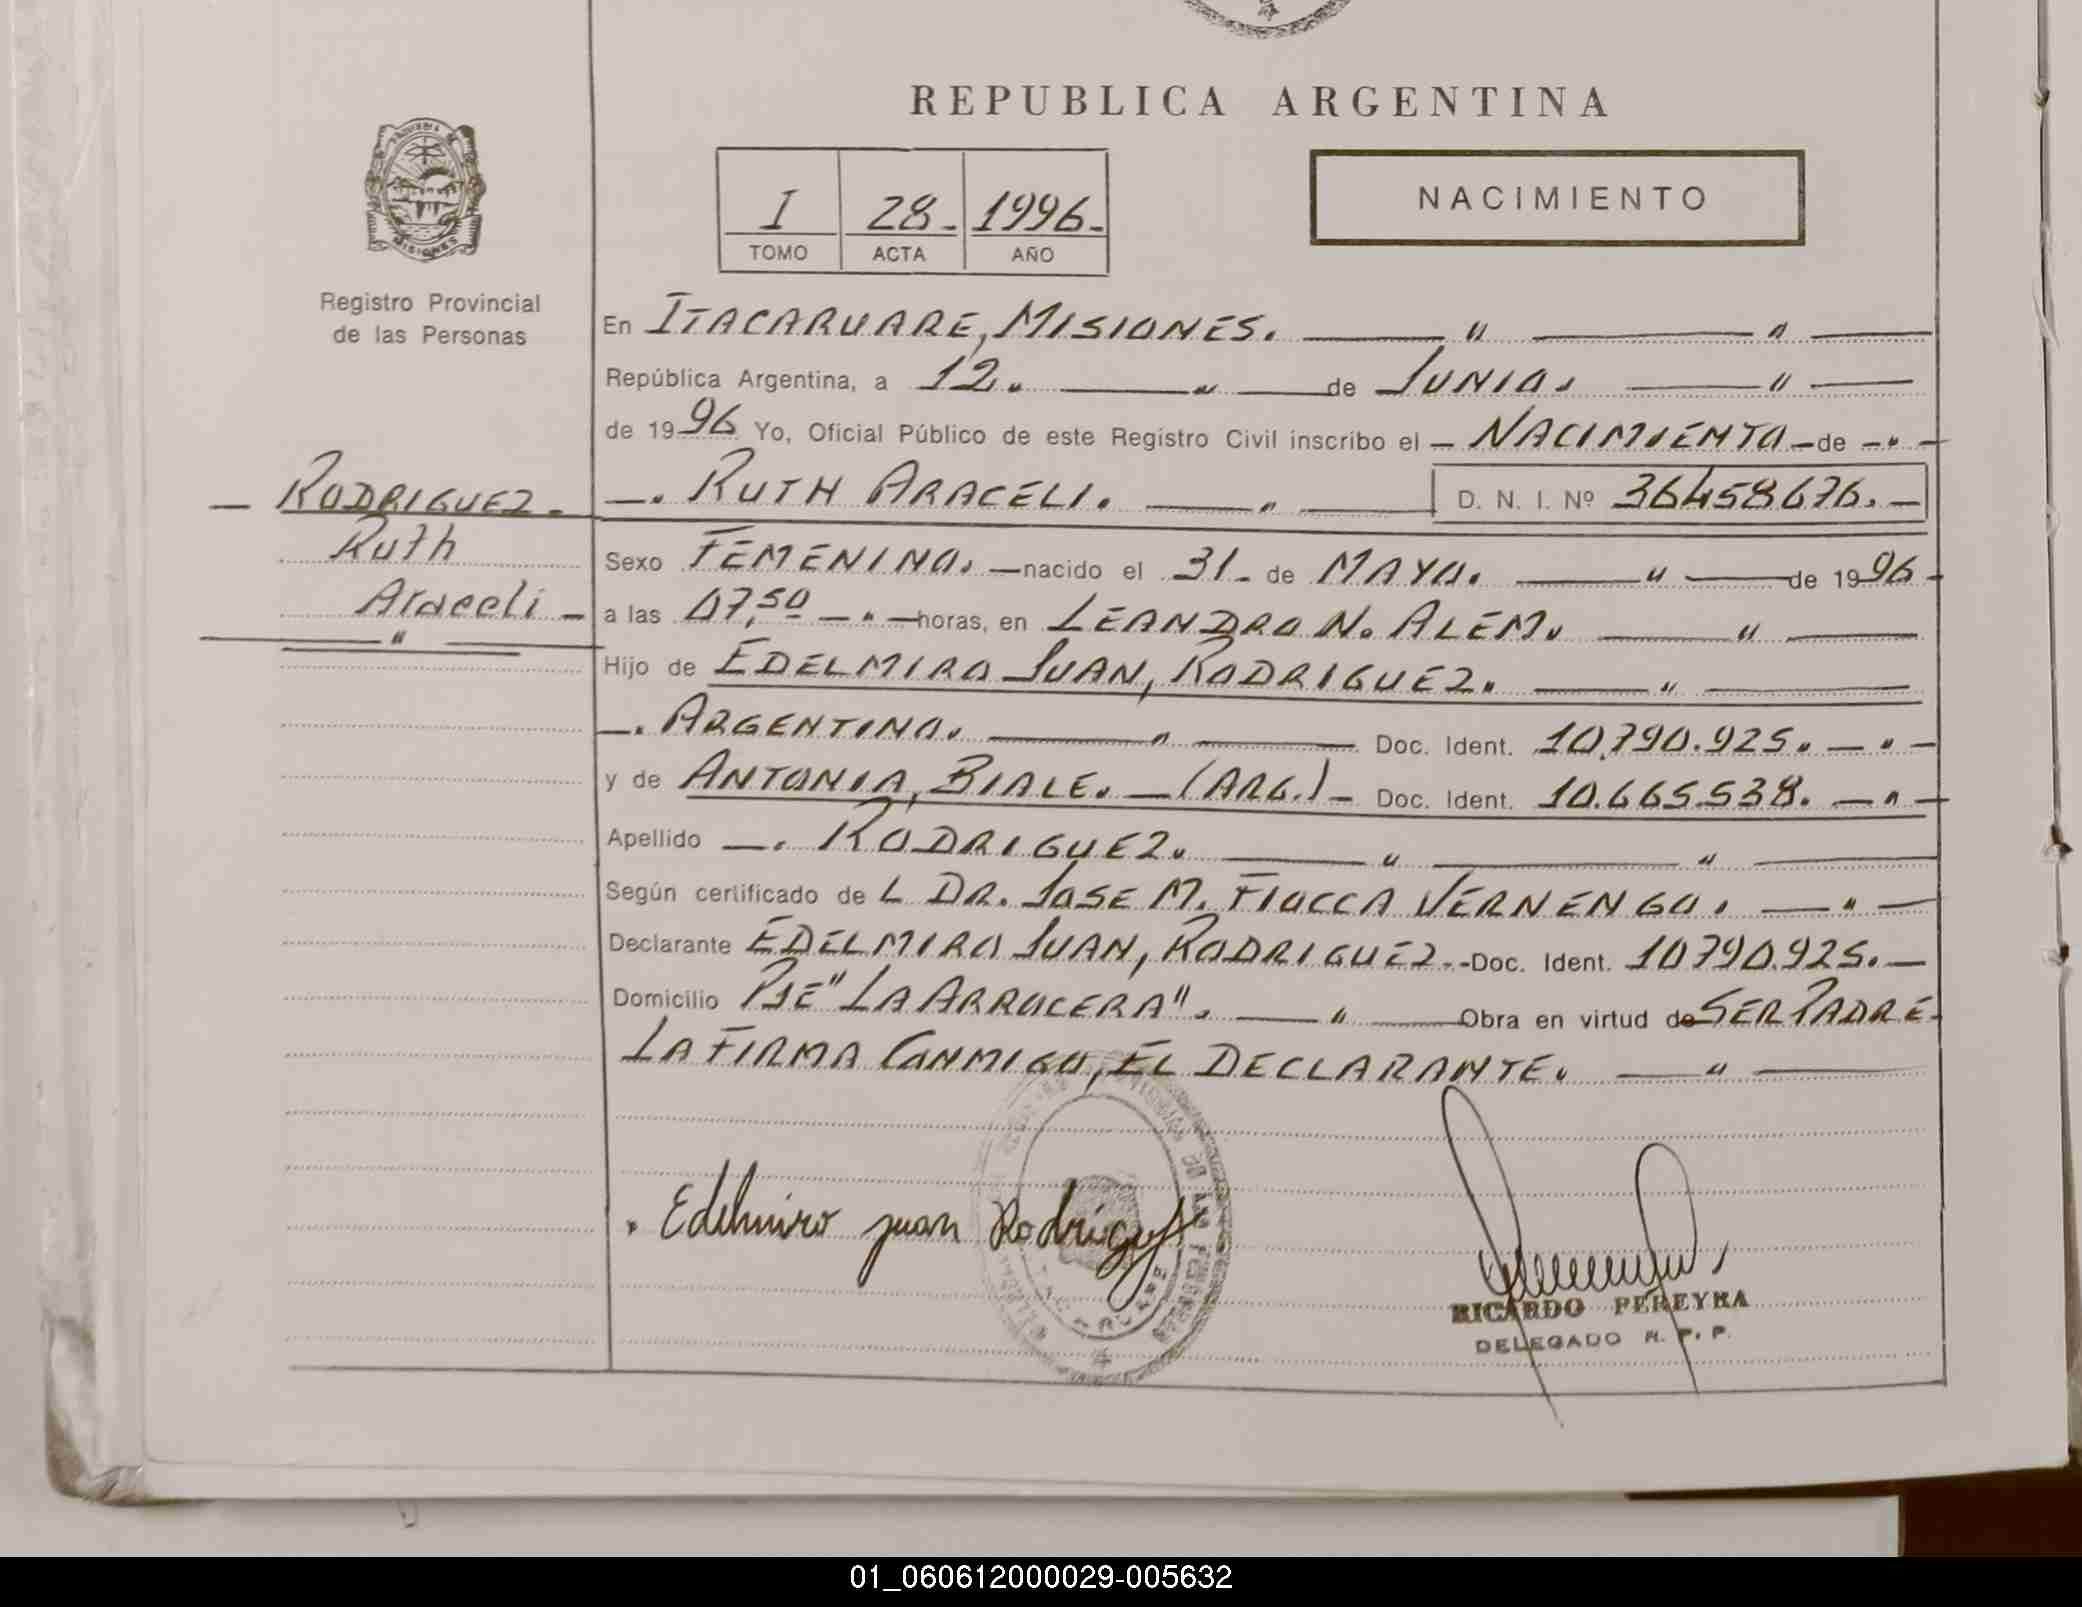 REPUBLICA ARGENTINA
PROVINCIA DE
MISIONES
Registro Provincial
de las Personas
I 28- 1996-
TOMO ACTA AÑO
NACIMIENTO
En ITACARUARE, MISIONES. — " — " —
República Argentina, a 12. — " — de JUNIO. — " —
de 1996 Yo, Oficial Público de este Registro Civil inscribo el — NACIMIENTO — de — " —
— RODRIGUEZ —
Ruth
Araceli —
— " —
—. RUTH ARACELI. — " — D. N. I. Nº 36458676. —
Sexo FEMENINO. — nacido el 31 - de MAYO. — " — de 1996 -
a las 07,50 — " — horas, en LEANDRO N. ALEM. — " —
Hijo de EDELMIRO JUAN, RODRIGUEZ. — " —
—. ARGENTINO. — " — Doc. Ident. 10.790.925. — " —
y de ANTONIA, BIALE. — (ARG.) — Doc. Ident. 10.665.538. — " —
Apellido —. RODRIGUEZ. — " — " —
Según certificado de L DR. JOSE M. FIOCCA VERNENGO. — " —
Declarante EDELMIRO JUAN, RODRIGUEZ.--Doc. Ident. 10790.925. —
Domicilio PJE "LA ARROCERA". — " — Obra en virtud de SER PADRE-
LA FIRMA CONMIGO, EL DECLARANTE. — " —
Edelmiro juan Rodriguez
RICARDO PEREYRA
DELEGADO R. P. P.
01_060612000029-005632